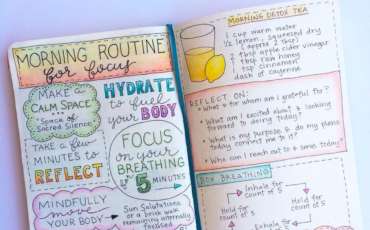 MORNING ROUTINE
for focus
MAKE A
CALM SPACE
Space of
Sacred Silence
HYDRATE
to fuel
your
BODY
TAKE a few
MINUTES to
REFLECT
FOCUS
on your
BREATHING
for
5 minutes
MINDFULLY
move
YOUR BODY
Sun Salutations
or a brisk walk
remaining internally
focused
MORNING DETOX TEA
1 cup warm water
1/2 lemon, squeezed dry
(approx 2 tbsp)
apple cider vinegar
raw honey
cinnamon
dash of cayenne
REFLECT ON:
• What & for whom am I grateful for?
• What am I excited about & looking
forward to doing today?
• What is my purpose & do my plans
today connect me to it?
• Who can I reach out to & serve today?
BOX BREATHING
Inhale for
count of 5
Hold for
count of 5
Hold for
count of 5
Exhale for
count of 5